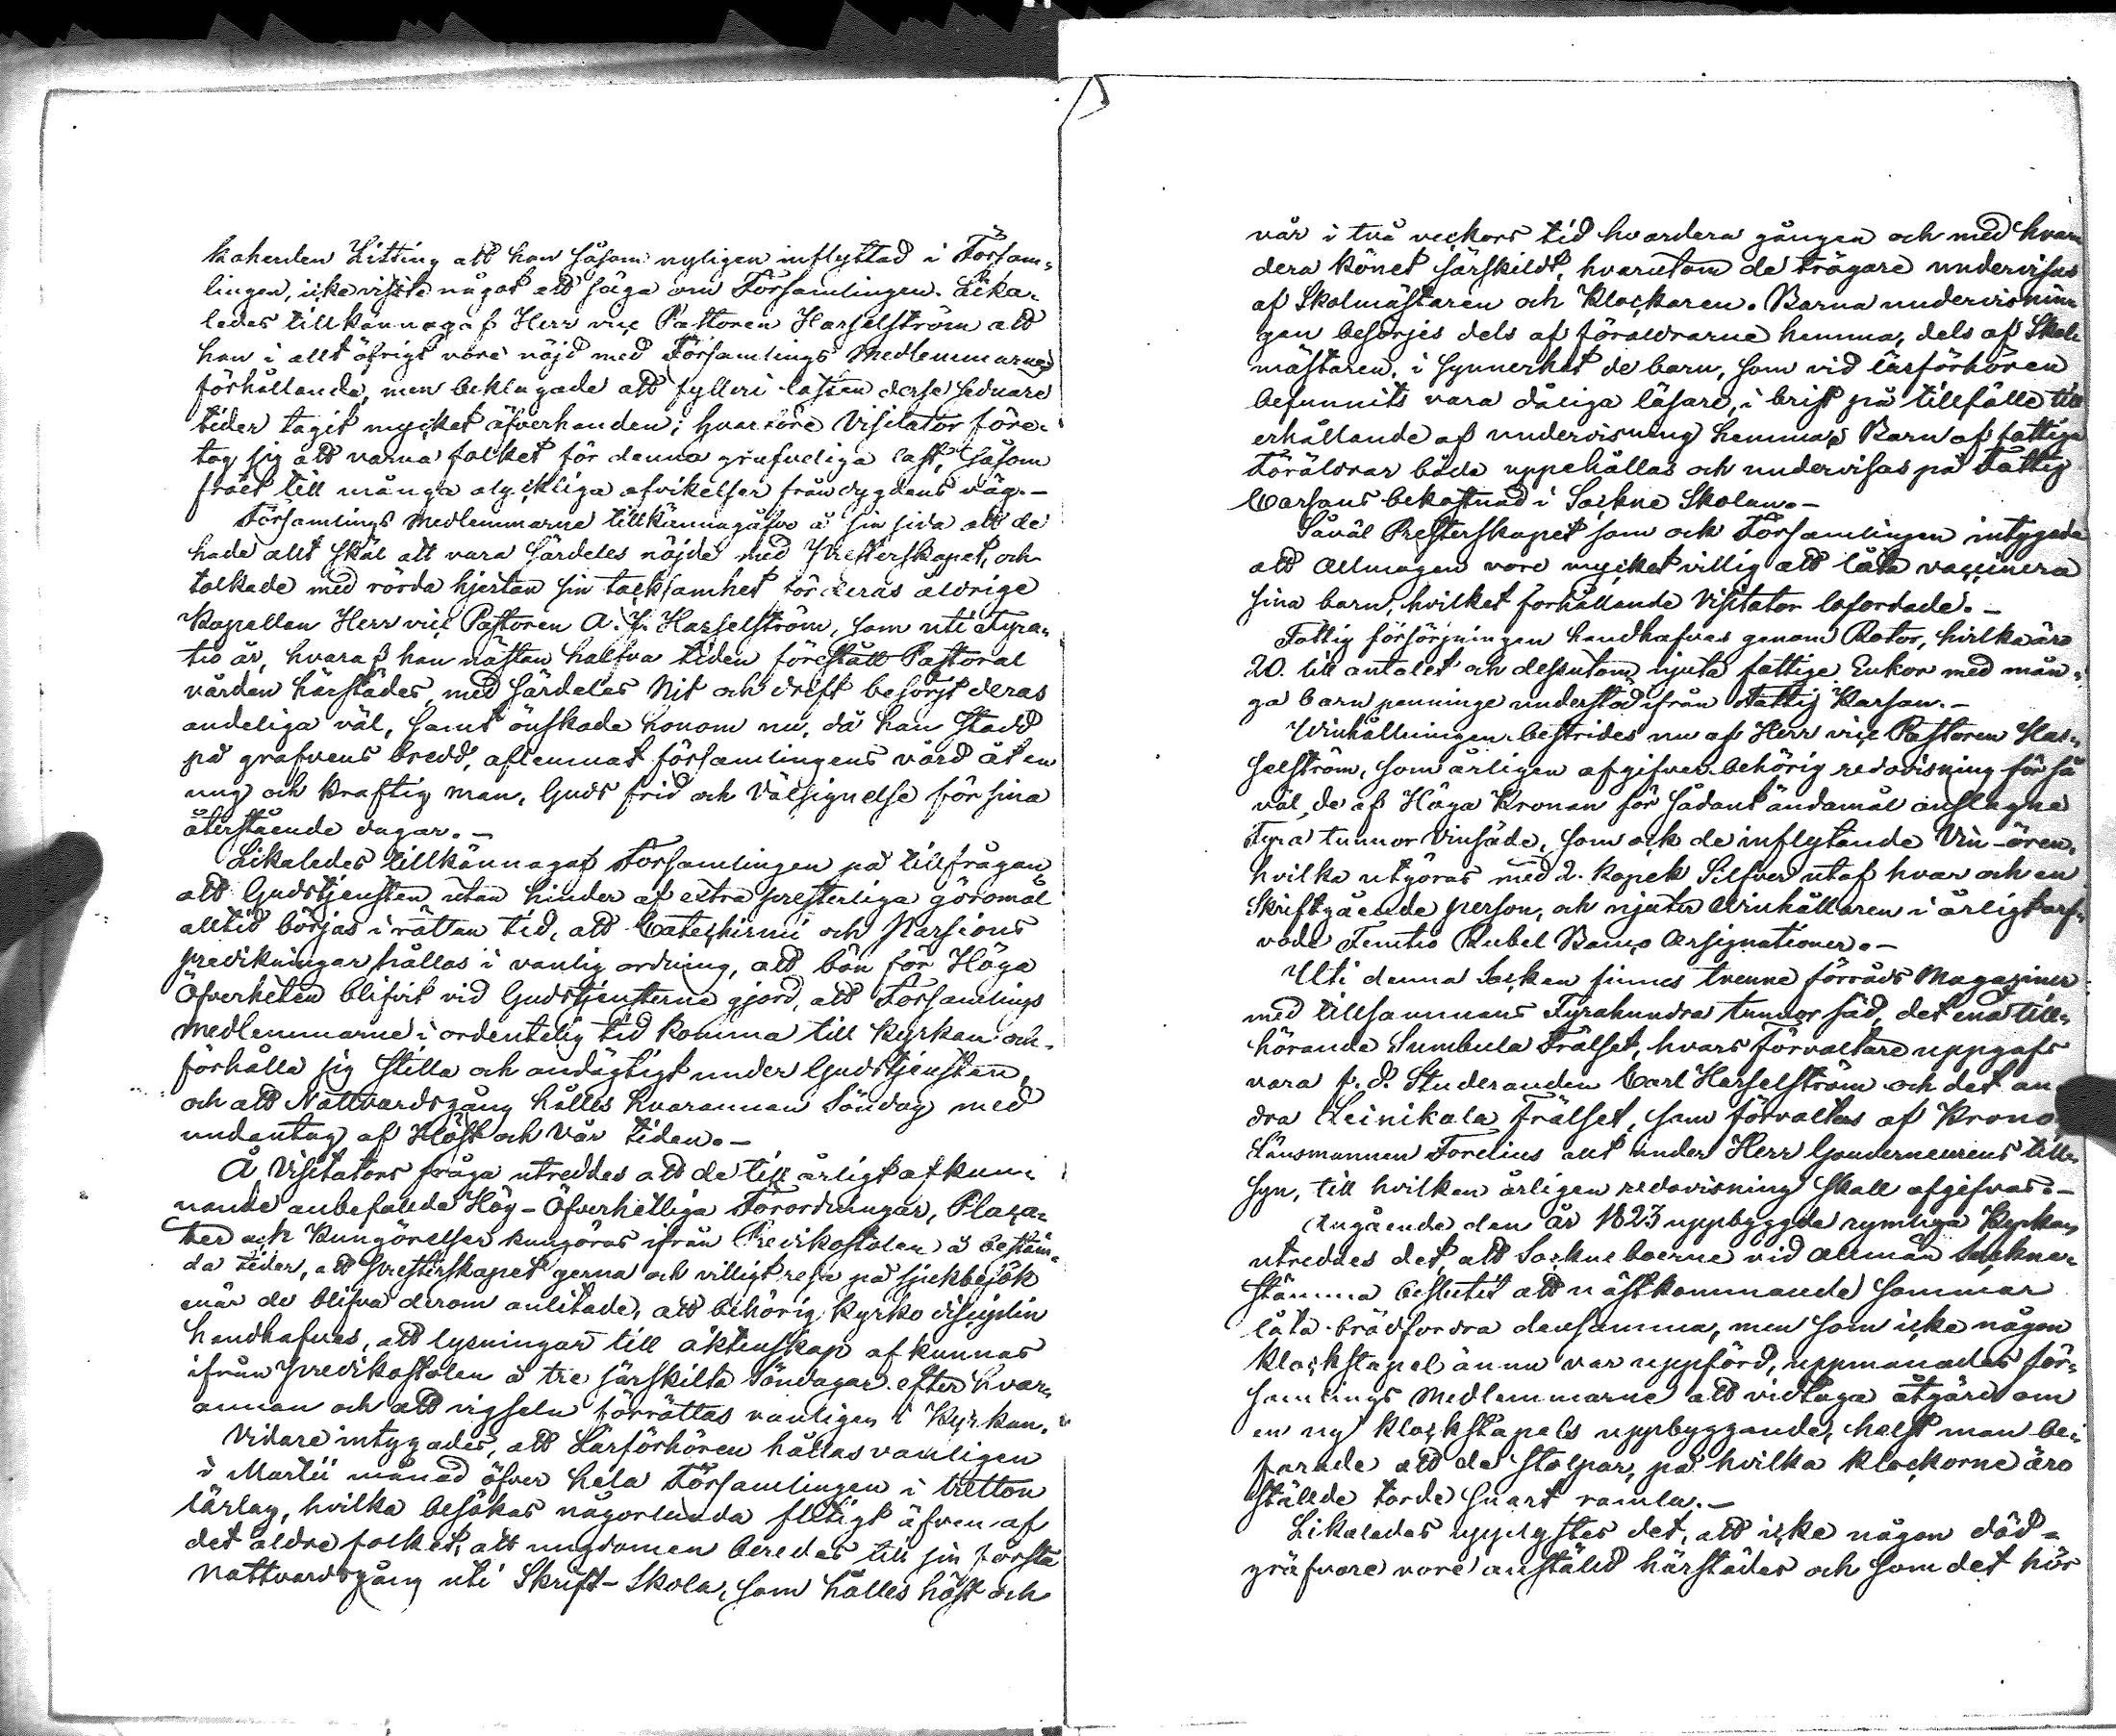 kaherden Litting att han såsom nyligen inflyttad i Försam-
lingen, icke visste något att säga om Församlingen. Lika-
ledes tillkännagaf Herr vice Pastoren Hasselström att
han i allt öfrigt vore nöjd med Församlings Medlemmarnes
förhållande, men beklagade att fylleri lasten desse sednare
tider tagit mycket öfverhanden; hvarföre Visitator före-
tog sig att varna folket för denna grufveliga last, såsom
fröet till många olyckliga afvikelser från dygdens väg.-
Församlings Medlemmarne tillkännagåfvo å sin sida att de
hade allt skäl att vara särdeles nöjde med Presterskapet, och
tolkade med rörda hjertan sin tacksamhet för deras åldrige
Kapellan Herr vice Pastoren A. J. Hasselström, som uti Fyra-
tio år, hvaraf han nästan halfva tiden förestått Pastoral
vården härstädes, med särdeles nit och drift besörgt deras
andeliga väl, samt önskade honom nu, då han stadd
på grafvens bredd, aflemnat församlingens vård åt en
ung och kraftig man, Guds frid och Välsignelse för sina
återstående dagar.-
Likaledes tillkännagaf Församlingen på tillfrågan,
att Gudstjensten utan hinder af extra presterliga göromål
alltid börjas i rättan tid, att Catechismi och Passions
predikningar hållas i vanlig ordning, att bön för Höga
Öfverheten blifvit vid Gudstjensterne gjord, att Församlings
Medlemmarne i ordentelig tid komma till Kyrkan och
förhålla sig stilla och andägtigt under Gudstjensten,
och att Nattvardsgång hålles hvarannan Söndag med
undantag af Höst och Vår tiden.-
Å Visitators fråga utreddes att de till årligt afkun-
nande anbefallde Hög-Öfverhetliga Förordningar, Placa-
ter och Kungörelser kungöras ifrån Predikostolen å bestäm-
da tider, att Presterskapet gerna och villigt resa på sjukbesök
enär de blifva derom anlitade, att behörig Kyrko disciplin
handhafves, att lysningar till äktenskap afkunnas
ifrån predikostolen å tre särskilta Söndagar efter hvar-
annan och att vigseln förrättas vanligen i Kyrkan.
Vidare intygades, att Läsförhören hållas vanligen
i Martii månad öfver hela Församlingen i tretton
läslag, hvilka besökas någorlunda flitigt äfven af
det äldre folket, att ungdomen beredes till sin första
Nattvardsgång uti Skrift-Skola, som hålles höst och
vår i två veckors tid hvardera gången och med hvar-
dera könet särskildt, hvarutom de trögare undervisas
af Skolmästaren och Klockaren. Barna undervisnin-
gen besörjes dels af föräldrarne hemma, dels af Skol-
mästaren, i synnerhet de barn, som vid läsförhören
befunnits vara dåliga läsare, i brist på tillfälle till
erhållande af undervisning hemma; Barn af fattiga
Föräldrar både uppehållas och undervisas på Fattig
Cassans bekostnad i Sockne Skolan.-
Såväl Presterskapet som och Församlingen intygade
att Allmogen vore mycket villig att låta vaccinera
sina barn, hvilket förhållande Visitator lofordade.-
Fattig försörjningen handhafves genom Rotor, hvilka äro
20. till antalet och dessutom njuta fattige Enkor med mån-
ga barn penninge understöd ifrån Fattig Kassan.-
Vinhållningen bestrides nu af Herr vice Pastoren Has-
selström, som årligen afgifver behörig redovisning för så
väl de af Höga Kronan för sådant ändamål anslagne
Fyra tunnor Vinsäde, som och de inflytande Vin-ören,
hvilka utgöras med 2. Kopek Silfver utaf hvar och en
Skriftgående person, och njuter Vinhållaren i årligt arf-
vode Femtio Rubel Banco Assignationer.-
Uti denna Socken finnes tvenne förråds Magaziner
med tillsammans Fyrahundra tunnor säd, det ena till-
hörande Sumbula Frälset, hvars Förvaltare uppgafs
vara f. d. Studeranden Carl Hasselström och det an-
dra Leinikala Frälset, som förvaltas af Krono
Länsmannen Forelius allt under Herr Gouverneurens till-
syn, till hvilken årligen redovisning skall afgifvas.-
Angående den år 1823 uppbyggda rymliga Kyrkan,
utreddes det, att Socknеboerne vid allmän Sockne-
stämma beslutit att nästkommande sommar
låta brädfordra densamma, men som icke någon
Klockstapel ännu var uppförd, uppmanades för-
samlings Medlemmarne att vidtaga åtgärd om
en ny Klockstapels uppbyggande, helst man be-
farade att de stolpar, på hvilka Klockorne äro
ställde torde snart ramla.-
Likaledes upplystes det, att icke någon död-
gräfvare vore anställd härstädes och som det hör